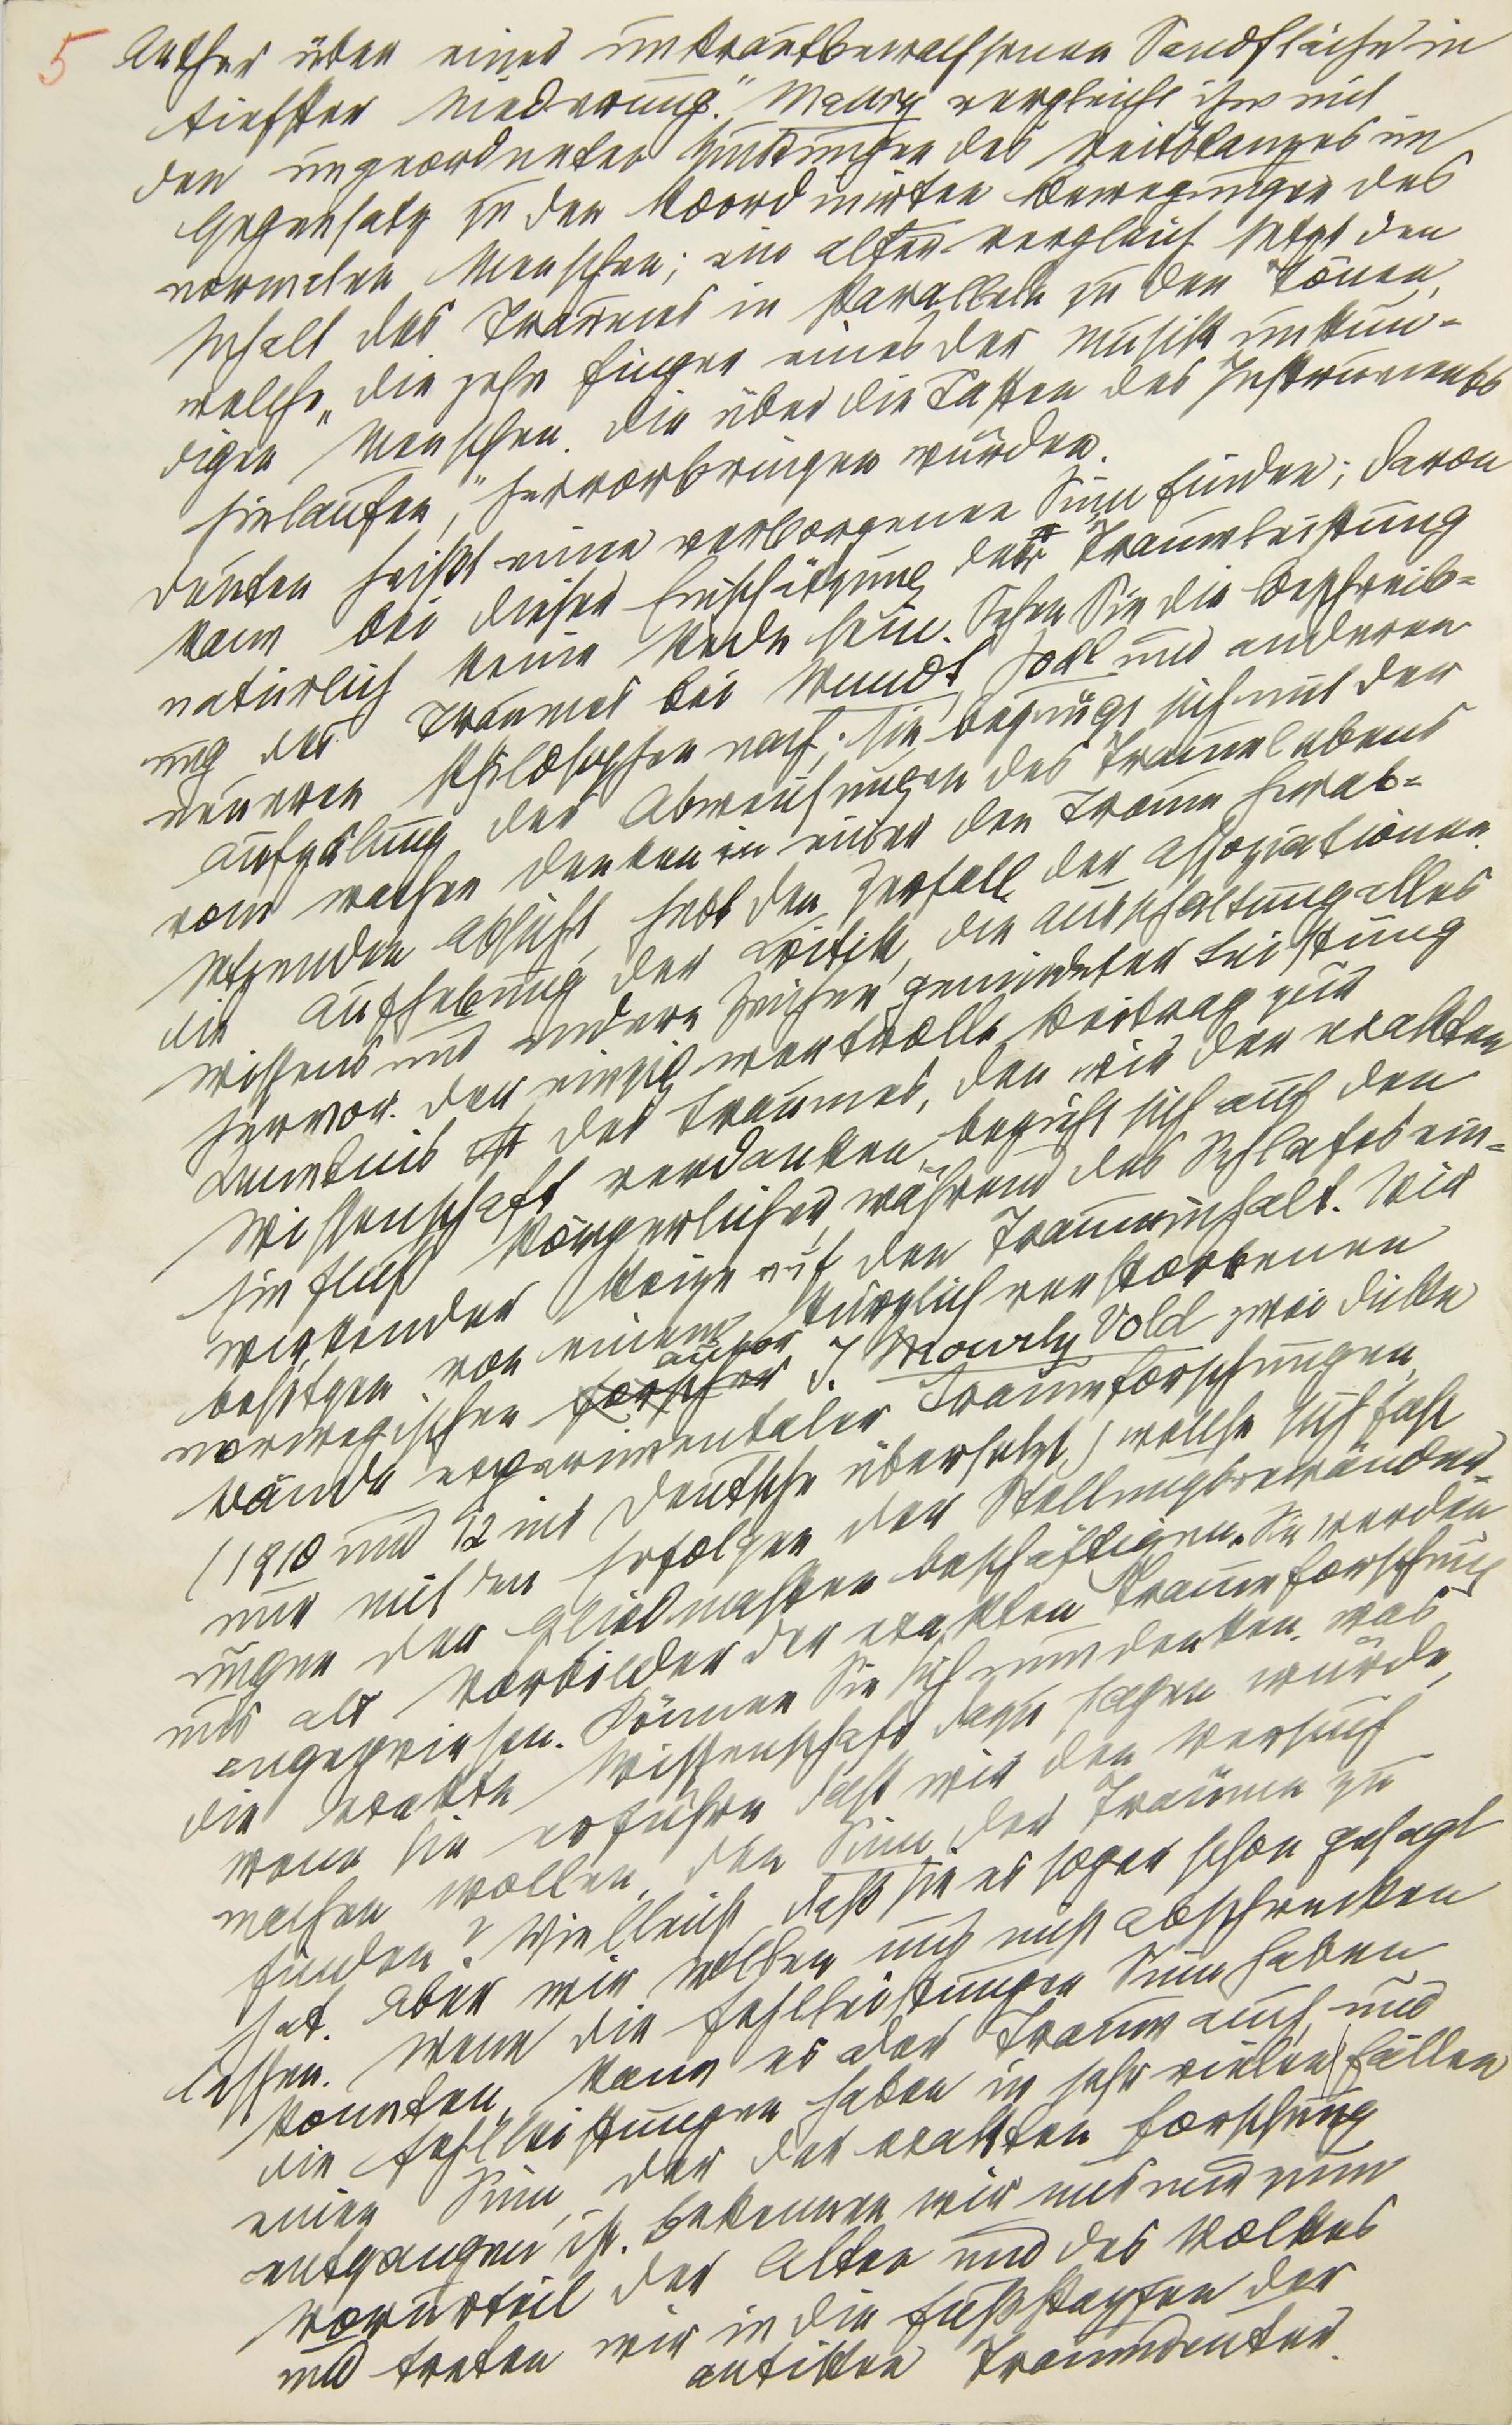 5
Äther über einer unkrautbewachsenen Sandfläche in
tiefster Niederung." Maury vergleicht ihn mit
den ungeordneten Zuckungen des Veitstanzes im
Gegensatz zu den koordinirten Bewegungen des
normalen Menschen; ein alter Vergleich setzt den
Inhalt des Traumes in Parallele zu den Tönen,
welche „die zehn Finger eines der Musik unkun-
digen Menschen, die über die Tasten des Instruments
hinlaufen," hervorbringen würden.
Deuten heißt einen verborgenen Sinn finden; davon
kann bei dieser Einschätzung der Traumleistung
natürlich keine Rede sein. Sehen Sie die Beschreib-
ung des Traumes bei Wundt, Jodl und anderen
neueren Philosophen nach; sie begnügt sich mit der
Aufzälung der Abweichungen des Traumlebens
vom wachen Denken in einer den Traum herab-
setzenden Absicht, hebt den Zerfall der Assoziationen,
die Aufhebung der Kritik, die Ausschaltung alles
Wissens und andere Zeichen geminderter Leistung
hervor. Der einzig wertvolle Beitrag zur
Kenntnis des Traumes, den wir der exakten
Wissenschaft verdanken, bezieht sich auf den
Einfluß körperlicher, während des Schlafes ein-
wirkender Reize auf den Trauminhalt. Wir
besitzen von einem kürzlich verstorbenen
norwegischen Forscher Autor J. Mourly Vold zwei dicke
Bände experimenteller Traumforschungen,
(1910 und 12 ins Deutsche übersetzt) welche sich fast
nur mit den Erfolgen der Stellungsveränder-
ungen der Gliedmaßen beschäftigen. Sie werden
uns als Vorbilder der exakten Traumforschung
angepriesen. Können Sie sich nun denken, was
die exakte Wissenschaft dazu sagen würde,
wenn sie erführe daß wir den Versuch
machen wollen, den Sinn der Träume zu
finden? Vielleicht daß sie es sogar schon gesagt
hat. Aber wir wollen uns nicht abschrecken
lassen. Wenn die Fehlleistungen Sinn haben
konnten, kann es der Traum auch, und
die Fehlleistungen haben in sehr vielen Fällen
einen Sinn, der der exakten Forschung
entgangen ist. Bekennen wir uns nur zum
Vorurteil der Alten und des Volkes
und treten wir in die Fußstapfen der
antiken Traumdeuter.